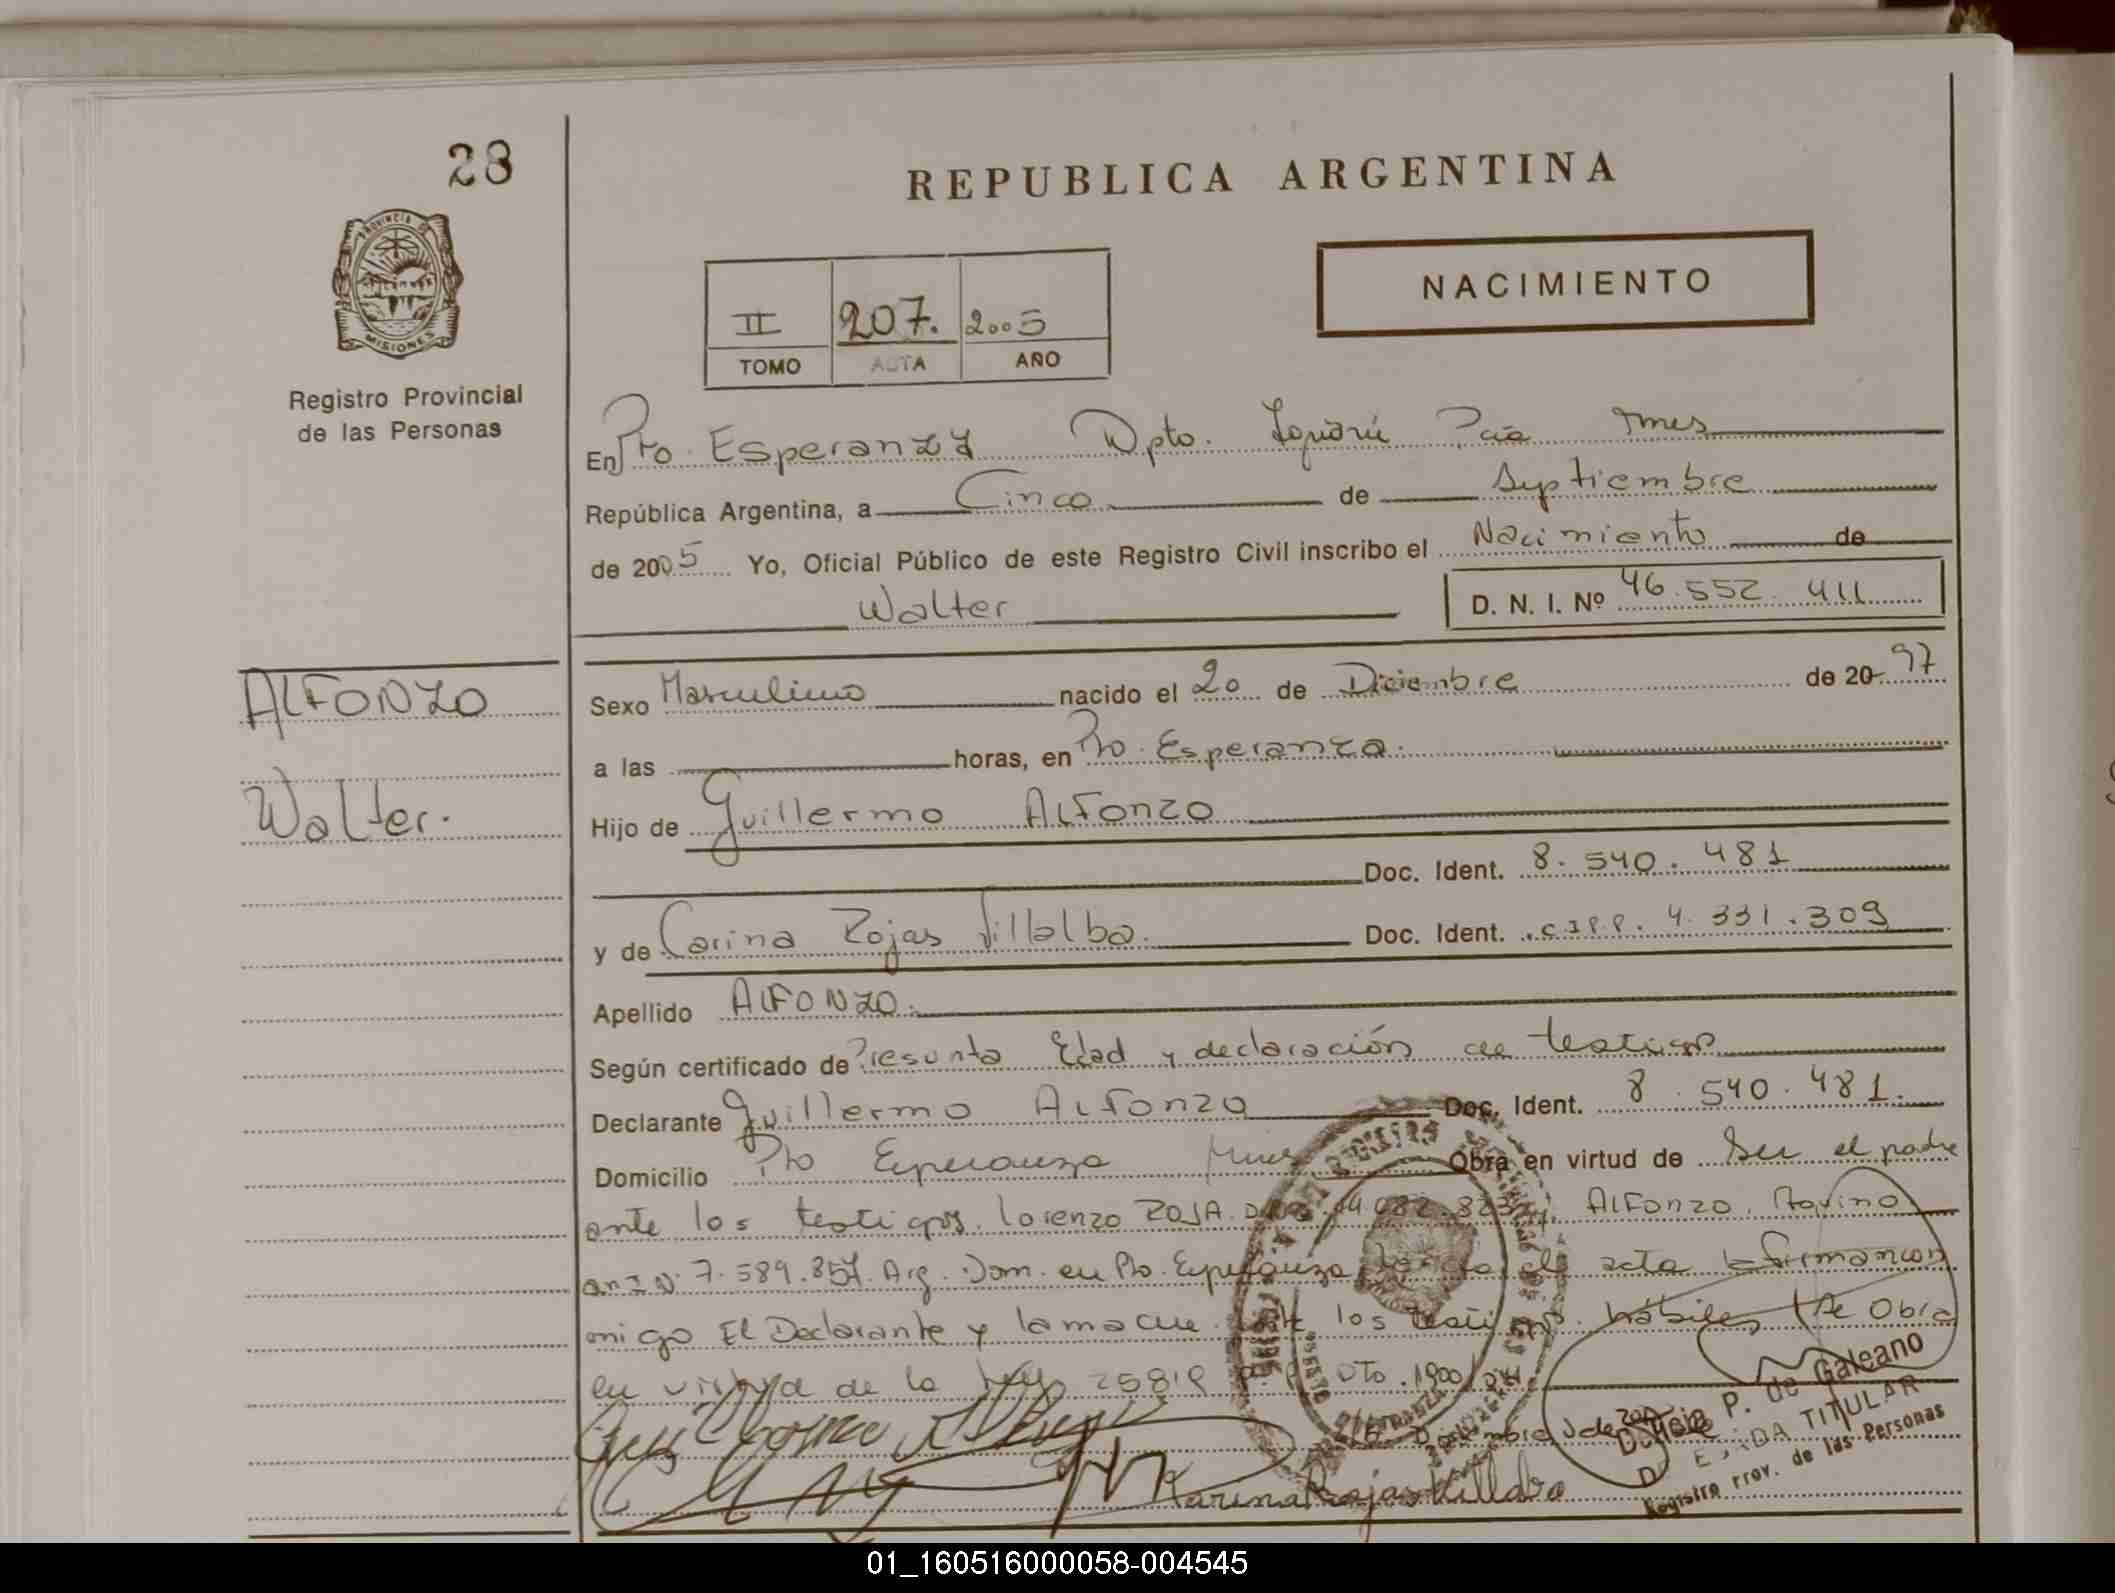 28
REPUBLICA ARGENTINA
PROVINCIA DE
MISIONES
Registro Provincial
de las Personas
II 207. 2005
TOMO ACTA AÑO
NACIMIENTO
En Pto. Esperanza Dpto. Iguazú Pcia Mnes
República Argentina, a Cinco de Septiembre
de 2005 Yo, Oficial Público de este Registro Civil inscribo el Nacimiento de
Walter
D. N. I. Nº 46.552.411
ALFONZO
Walter.
Sexo Masculino nacido el 20 de Diciembre de 20 97
a las horas, en Pto. Esperanza.
Hijo de Guillermo ALFONZO
Doc. Ident. 8.540.481
y de Carina Rojas Villalba. Doc. Ident. C.I.P.P. 4.331.309
Apellido ALFONZO.
Según certificado de Presunta Edad y declaración de testigos
Declarante Guillermo ALFONZO Doc. Ident. 8.540.481.
Domicilio Pto Esperanza Mnes Obra en virtud de Ser el padre
ante los testigos. Lorenzo ROJA ALFONZO, Aquino
7.589.857. Arg. Dom. en Pto. Esperanza acta firman con
migo El Declarante y la madre los testigos hábiles Obra
en virtud de la Ley 25819 Dto. 1900
Karina Rojas Villalba
P. de Galeano
TITULAR
Registro Prov. de las Personas
01_160516000058-004545